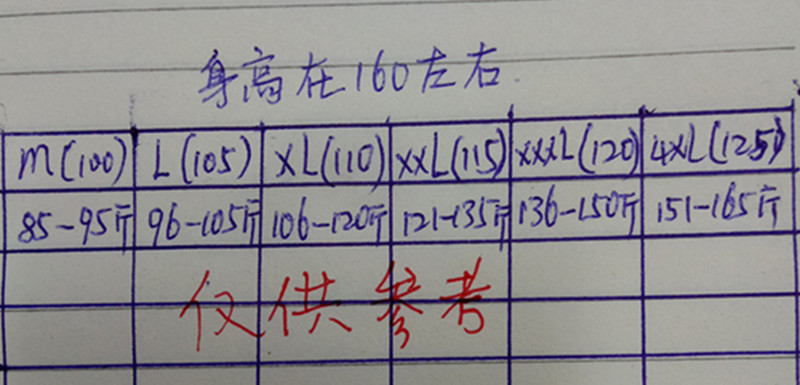 身高在160左右
M(100) L(105) XL(110) XXL(115) XXXL(120) 4XL(125)
85-95斤 96-105斤 106-120斤 121-135斤 136-150斤 151-165斤
仅供参考